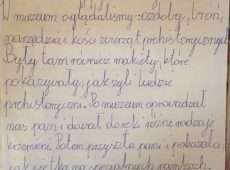 W muzeum oglądaliśmy ozdoby, broń,
narzędzia i kości zwierząt prehistorycznych.
Były tam również makiety, które
pokazywały, jak żyli ludzie
prehistoryczni. Po muzeum oprowadzał
nas pan i dawał do ręki różne rodzaje
krzemieni. Potem przyszła pani i pokazała
jak na specjalnych